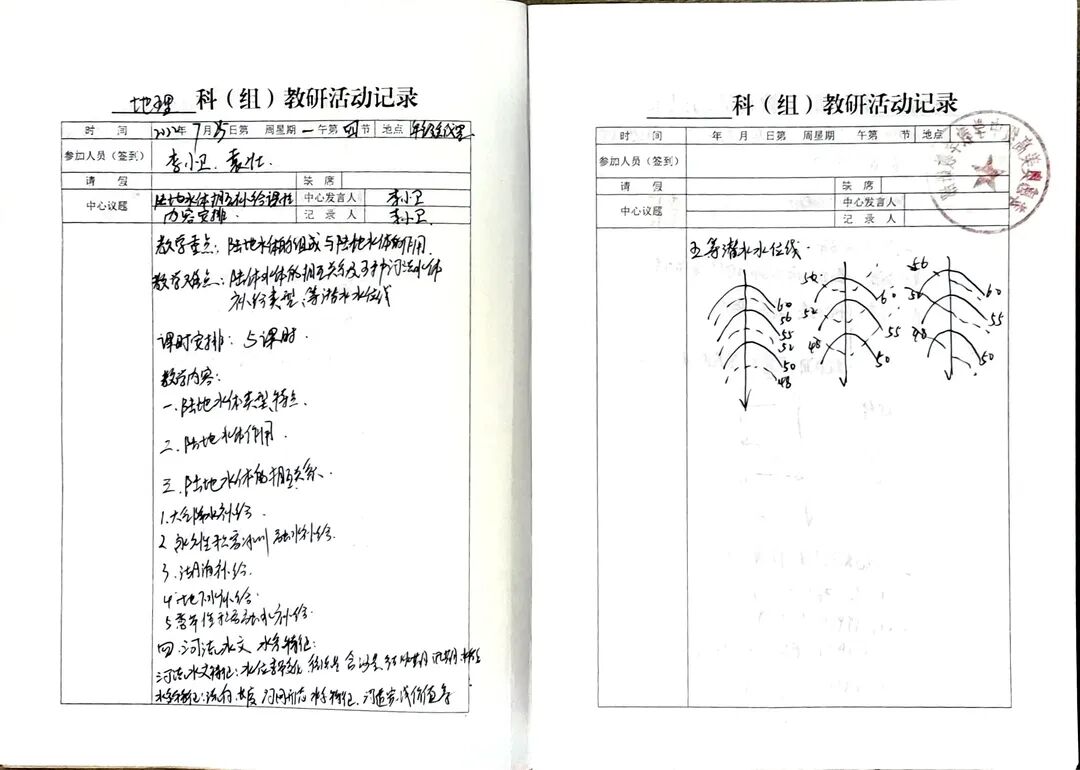 地理 科（组）教研活动记录
时 间 2022年7月25日第 周星期一午第四节 地点
参加人员（签到） 李小卫、袁仕
请 假 缺 席
中心议题 陆地水体相互补给课时内容安排. 中心发言人 李小卫
记 录 人 李小卫
教学重点：陆地水体的组成与陆地水体的作用.
教学难点：陆体水体的相互关系及主补河流水体
补给类型、等潜水水位线
课时安排：5课时.
教学内容：
一.陆地水体类型,特点.
二.陆地水体作用.
三.陆地水体的相互关系.
1.大气降水补给.
2.永久性积雪冰川融水补给.
3.湖泊补给.
4.地下水补给.
5.季节性积雪融水补给.
四.河流水文 水系特征：
河流水文特征：水位季节变化 径流量 含沙量 结冰期 汛期
水系特征：流向.长度 河网形态 水系特征. 河道宽、浅
科（组）教研活动记录
时 间 年 月 日第 周星期 午第 节 地点
参加人员（签到）
请 假 缺 席
中心议题 中心发言人
记 录 人
五.等潜水水位线.
60 56 55 52 50 48
56 60 52 55 48 50
56 60 52 55 48 50